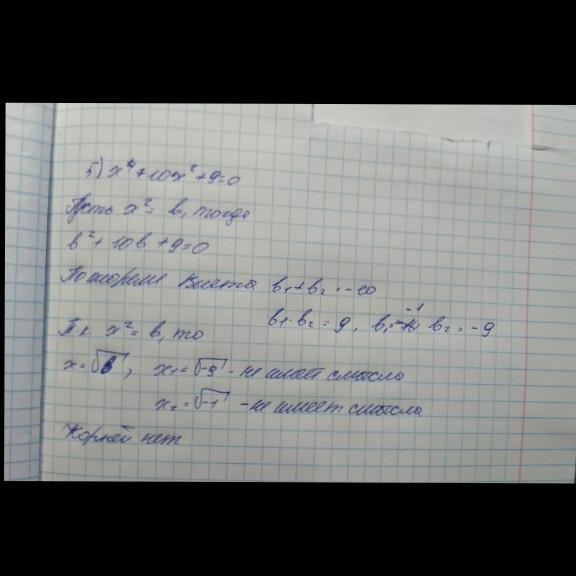 5) x⁴+10x²+9=0
Пусть x²= b, тогда
b²+10b+9=0
По теореме Виета b₁+b₂=-10
b₁·b₂=9, b₁=-1 b₂=-9
Т.к. x²=b, то
x=√b, x₁=√-9 - не имеет смысла
x₂=√-1 - не имеет смысла
Корней нет